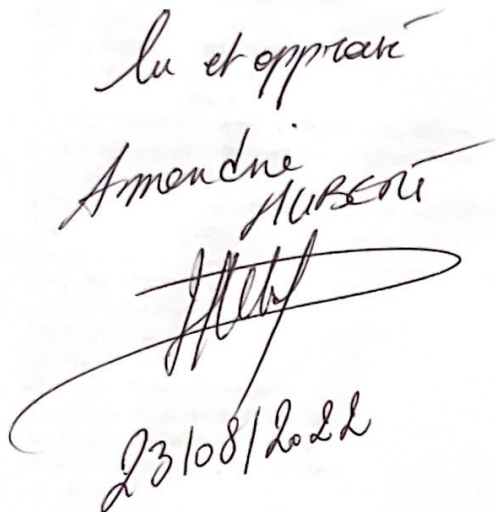 lu et approuvé
Amandine
HUBERT
23/08/2022